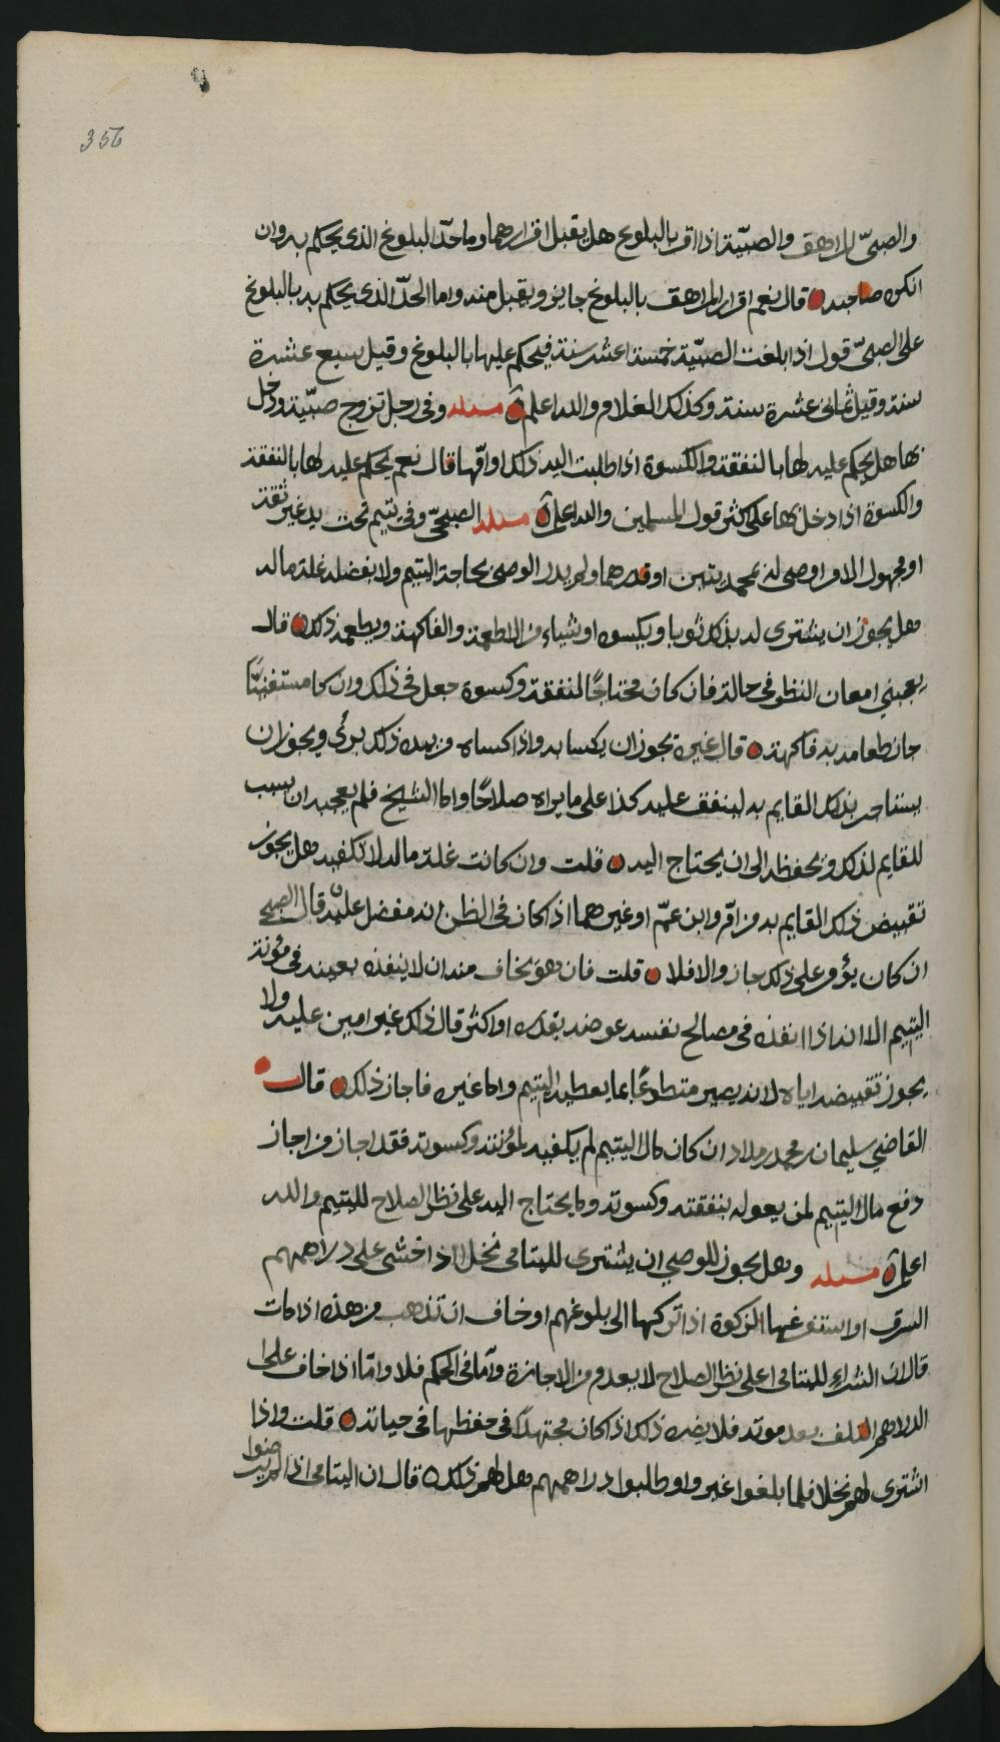 356
والصبيّ المراهق والصبيّة اذا اقر بالبلوغ هل يقبل اقرارهما وما حدّ البلوغ الذي يحكم به وان
انكره صاحبه قال نعم اقرار المراهق بالبلوغ جايز ويقبل منه واما الحدّ الذي يحكم به بالبلوغ
على الصبيّ قول اذا بلغت الصبيّة خمسة اعشر سنة فيحكم عليها بالبلوغ وقيل سبع عشرة
سنة وقيل ثماني عشرة سنة وكذلك الغلام والله اعلم مسئله وفي رجل تزوج صبيّة ودخل
بها هل يحكم عليه لها بالنفقة والكسوة اذا طلبت اليه ذلك او امّها قال نعم يحكم عليه لها بالنفقة
والكسوة اذا دخل بها على اكثر قول المسلمين والله اعلم مسئله الصبحيّ وفي يتيم تحت يد غير ثقة
او مجهول الامر اوصى له بمحمديتين او قدرهما ولم يدر الوصي بحاجة اليتيم ولا بفضله غلة ماله
هل يجوز ان يشترى له بذلك ثوبا ويكسوه او شياء من الاطعمة والفاكهة ويطعمه ذلك قال
يعجبني امعان النظر في حاله فان كان محتاجًا لنفقة وكسوة جعل في ذلك وان كا مستغنيًا
جاز طعامه به فاكهة قال غيره يجوز ان يكسا به واذا كساه من بيده ذلك برئ ويجوز ان
يستاجر بذلك القايم به لينفق عليه كذا على ما يراه صلاحًا واما الشيخ فلم يعجبه ان
للقايم لذلك ويحفظه الى ان يحتاج اليه قلت وان كانت غلة ماله لا تكفيه هل يجوز
تقبيض ذلك القايم به من امّ وابن عمّ او غيرهما اذا كان في الظن انه مفضل عليه قال الصبحي
ان كان يؤمن على ذلك جاز والا فلا قلت فان هو يخاف منه ان لا ينفذه بعينه في مؤنة
اليتيم الا انه اذا انفذه في مصالح نفسه عوضه بقدره او اكثر قال ذلك غير امين عليه ولا
يجوز تقبيضه اياه لانه يصير متطوعًا بما يعطيه اليتيم واما غيره فاجاز ذلك قال
القاضي سليمان بن محمد بن مداد ان كان مال اليتيم لم يكفيه لمؤنته وكسوته فقد اجاز من اجاز
دفع مال اليتيم لمن يعوله بنفقته وكسوته وما يحتاج اليه على نظر الصلاح لليتيم والله
اعلم مسئله وهل يجوز للوصي ان يشتري لليتامى نخلا اذا خشى على دراهمهم
السرق او استفرغها الزكوة اذا تركها الى بلوغهم او خاف ان تذهب من هذه اذا مات
قال ان الشراء لليتامى اعلى نظر الصلاح لا يعدم من الاجازة وامّا في الحكم فلا وامّا اذا خاف على
الدراهم التلف بعد موته فلا يضره ذلك اذا كان مجتهدًا في حفظها في حياته قلت واذا
اشترى لهم نخلا فلما بلغوا غيروا وطلبوا دراهمهم هل لهم ذلك قال ان اليتامى اذا لم يرضوا